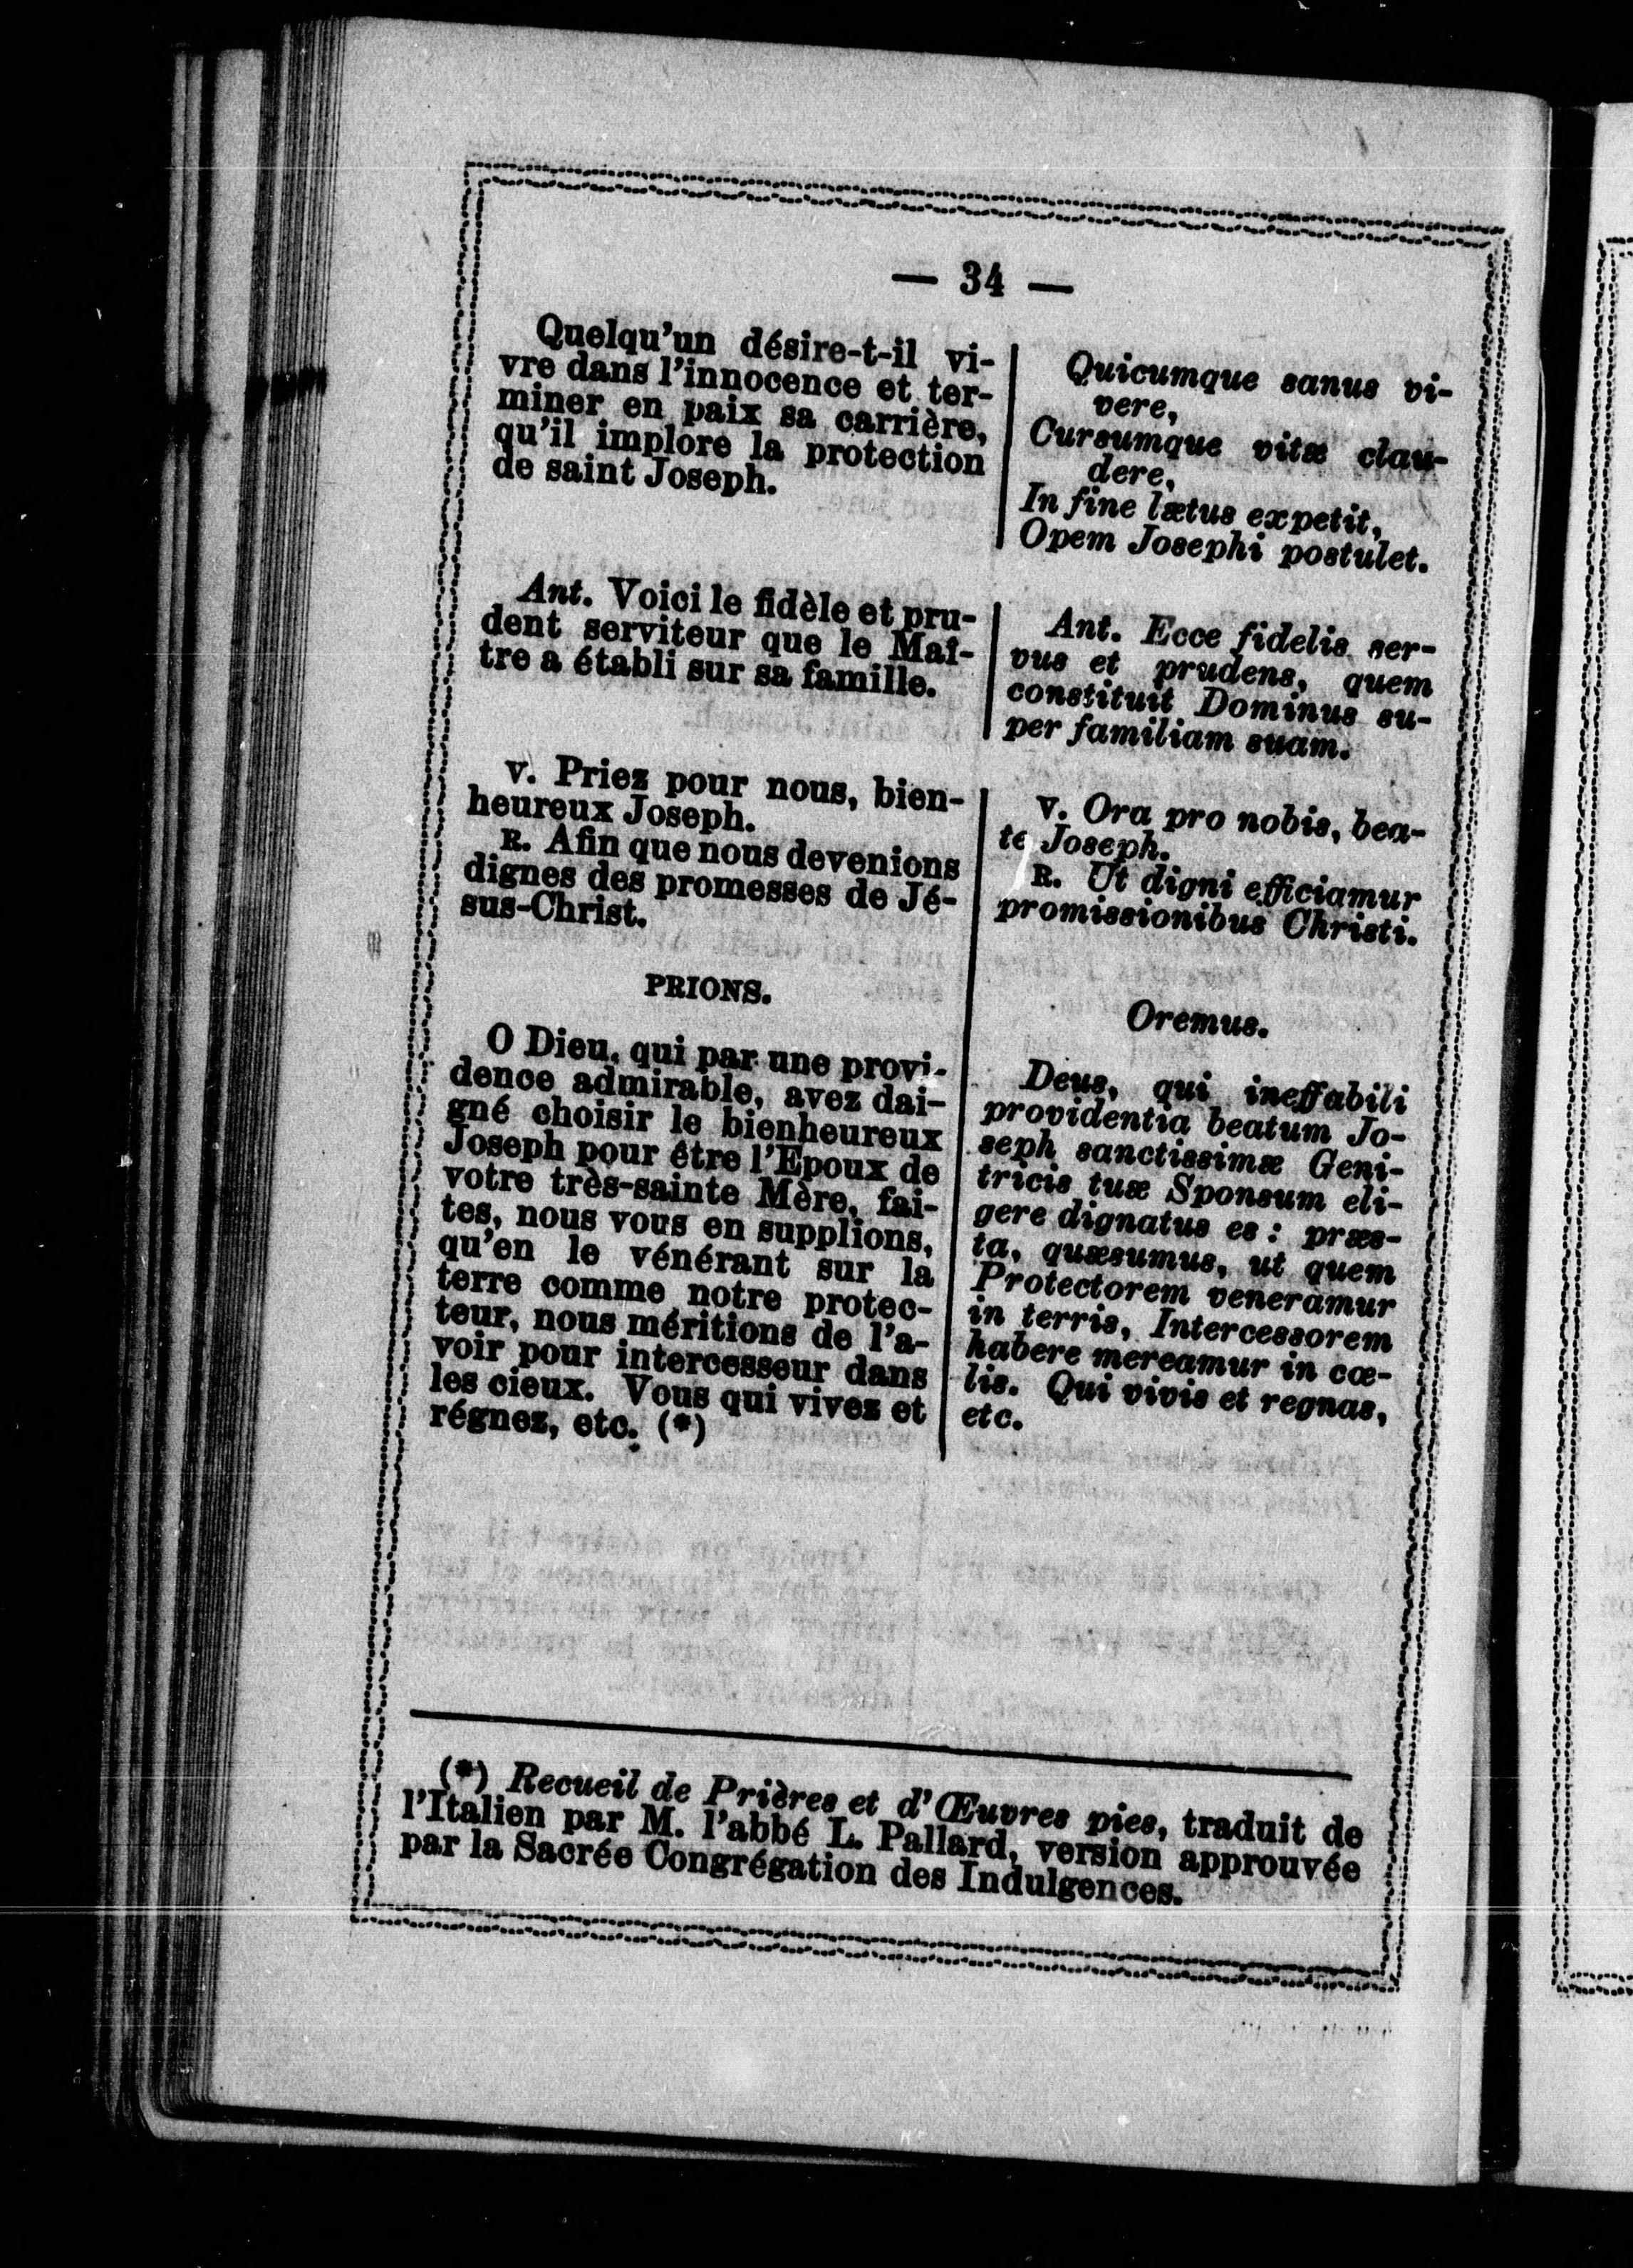 — 34 —
Quelqu'un désire-t-il vi-
vre dans l'innocence et ter-
miner en paix sa carrière,
qu'il implore la protection
de saint Joseph.
Ant. Voici le fidèle et pru-
dent serviteur que le Maî-
tre a établi sur sa famille.
V. Priez pour nous, bien-
heureux Joseph.
R. Afin que nous devenions
dignes des promesses de Jé-
sus-Christ.
PRIONS.
O Dieu, qui par une provi-
dence admirable, avez dai-
gné choisir le bienheureux
Joseph pour être l'Epoux de
votre très-sainte Mère, fai-
tes, nous vous en supplions,
qu'en le vénérant sur la
terre comme notre protec-
teur, nous méritions de l'a-
voir pour intercesseur dans
les cieux. Vous qui vivez et
régnez, etc. (*)
Quicumque sanus vi-
vere,
Cursumque vitæ clau-
dere,
In fine lætus expetit,
Opem Josephi postulet.
Ant. Ecce fidelis ser-
vus et prudens, quem
constituit Dominus su-
per familiam suam.
V. Ora pro nobis, bea-
te Joseph.
R. Ut digni efficiamur
promissionibus Christi.
Oremus.
Deus, qui ineffabili
providentia beatum Jo-
seph sanctissimæ Geni-
tricis tuæ Sponsum eli-
gere dignatus es : præs-
ta, quæsumus, ut quem
Protectorem veneramur
in terris, Intercessorem
habere mereamur in cœ-
lis. Qui vivis et regnas,
etc.
(*) Recueil de Prières et d'Œuvres pies, traduit de
l'Italien par M. l'abbé L. Pallard, version approuvée
par la Sacrée Congrégation des Indulgences.